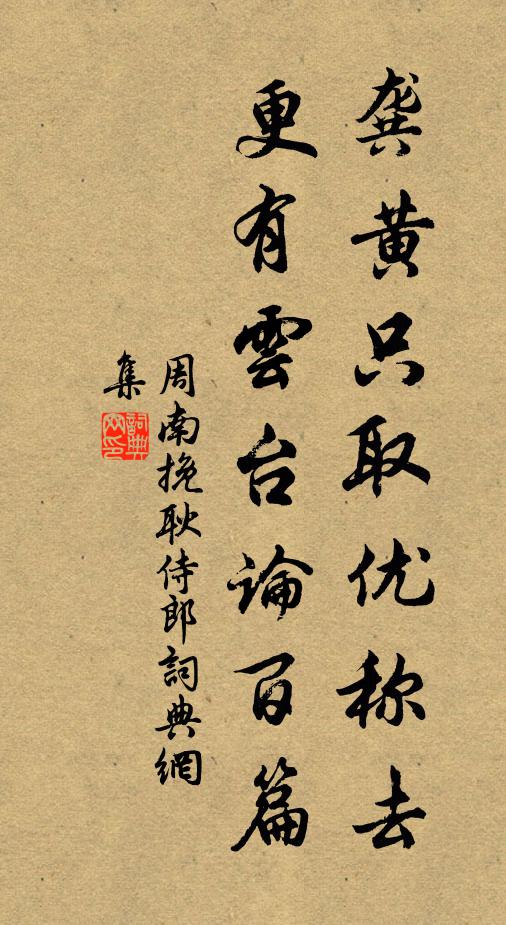 龚黄只取优称去
更有雲台論百篇
周南挽耿侍郎詞典網
集
詞典
网印